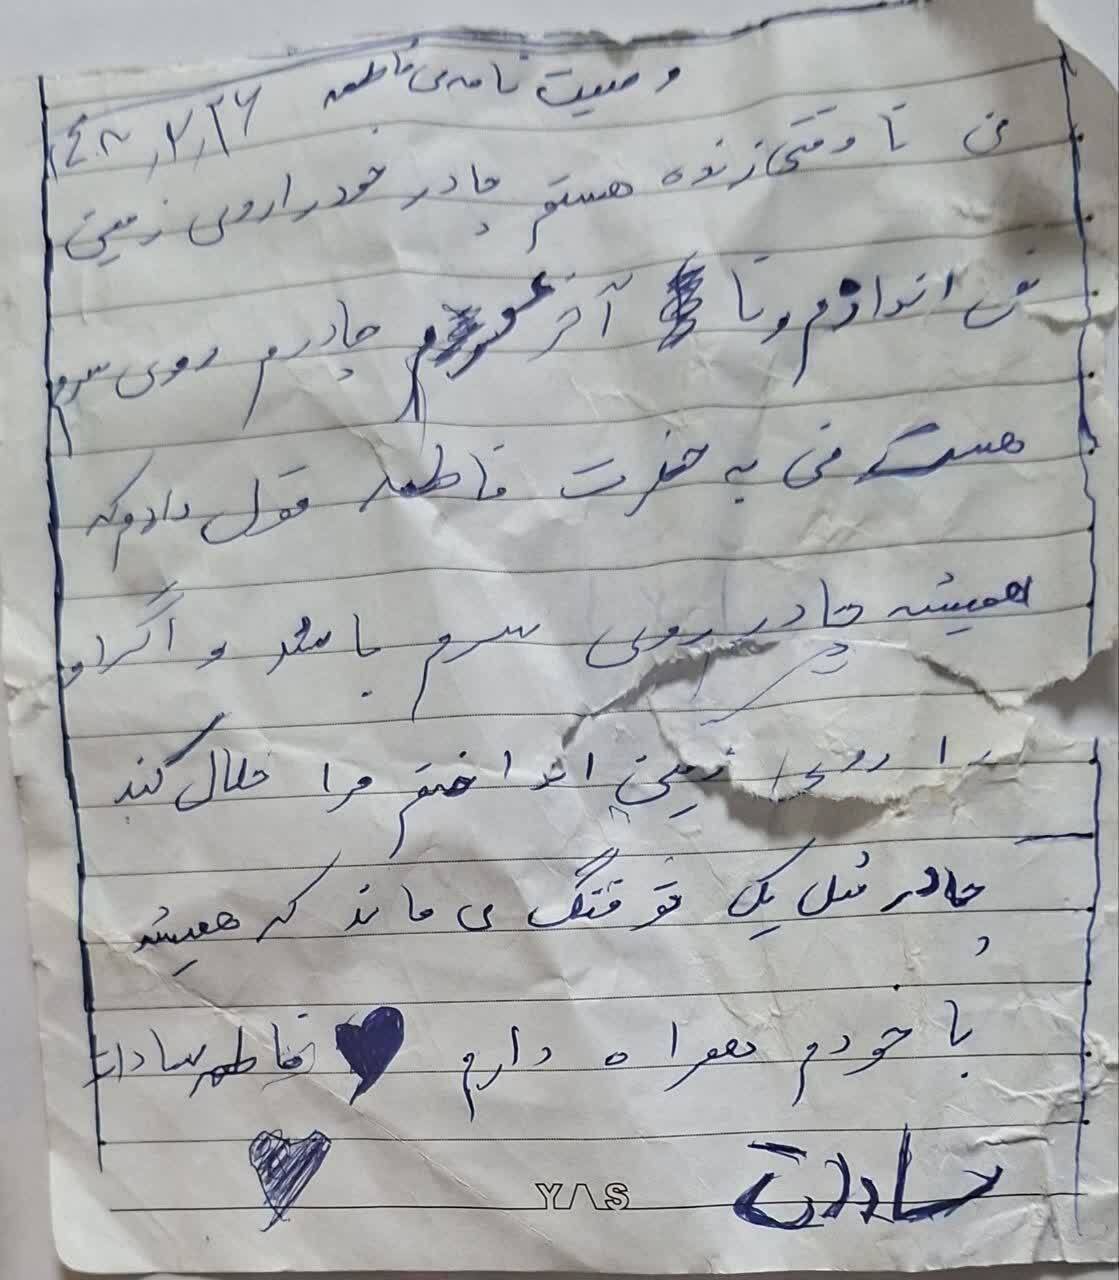 وصیت نامه ی فاطمه ۱۴۰۲,۲,۲۶
من تا وقتی زنده هستم چادر خود را روی زمین
نمی اندازم و تا آخر عمرم چادرم روی سرم
هست من به حضرت فاطمه قول دادم که
همیشه چادر روی سرم باشد و اگر او
را روی زمین انداختم مرا حلال کند
چادر مثل یک تو فتنگ می ماند که همیشه
با خودم همراه دارم فاطمه سادات
YAS